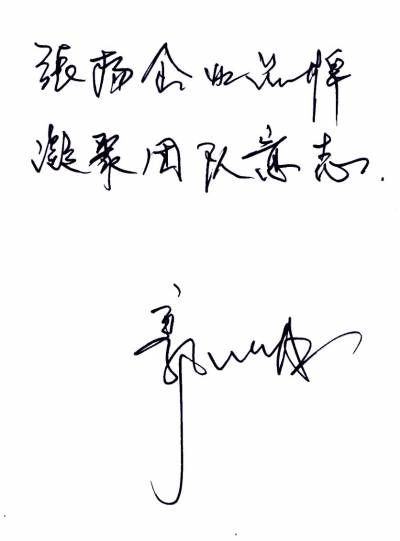 张扬企业品牌
凝聚团队意志.
郭